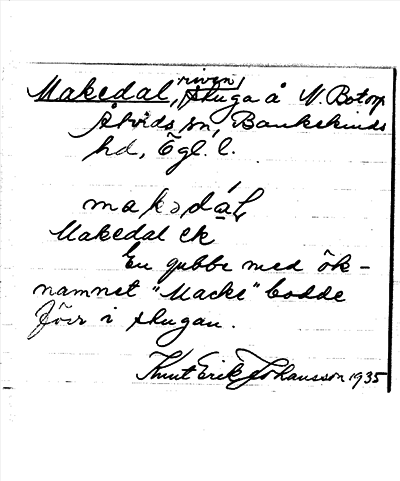 riven,
Makedal, stuga å N. Botorp
Åtvids sn, Bankekinds
hd, Ögl. l.
makədáḷ
Makedal ek
En gubbe med ök-
namnet "Macke" bodde
förr i stugan.
Knut Erik Johansson 1935